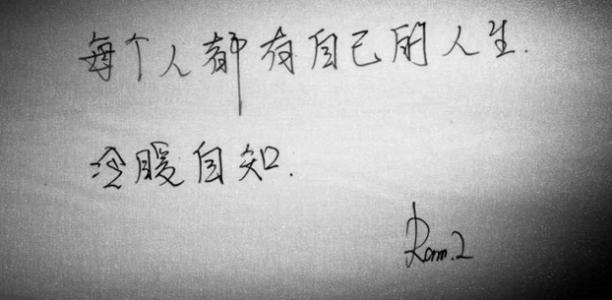 每个人都有自己的人生.
冷暖自知.